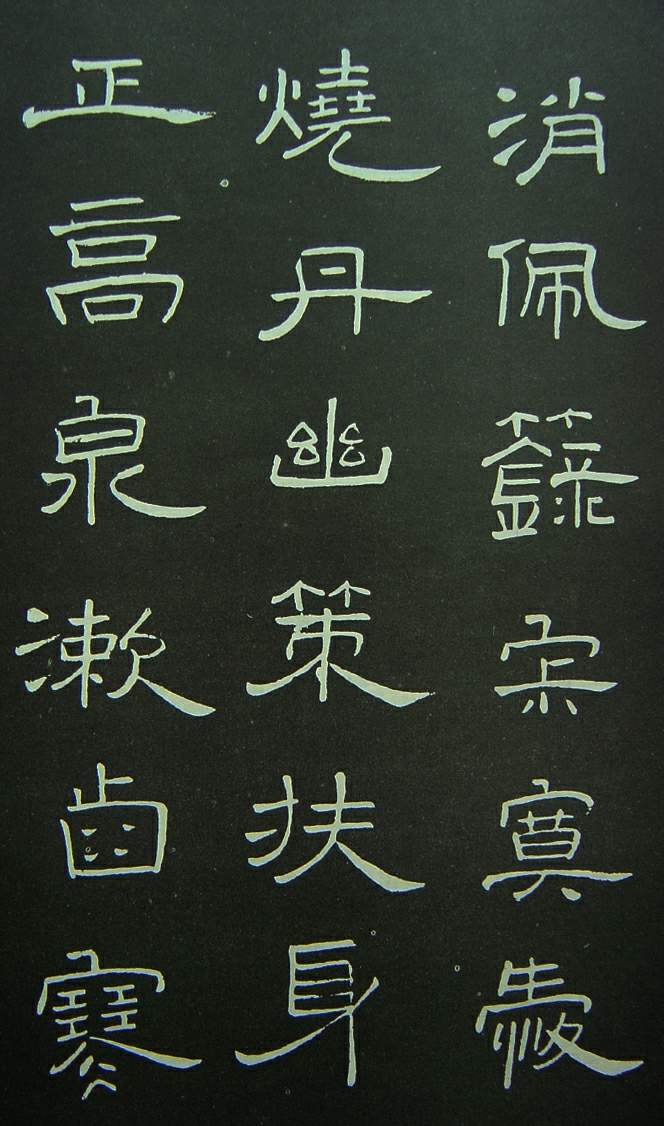 消佩籙寂寞歲
燒丹幽策扶身
正高泉漱齒寒